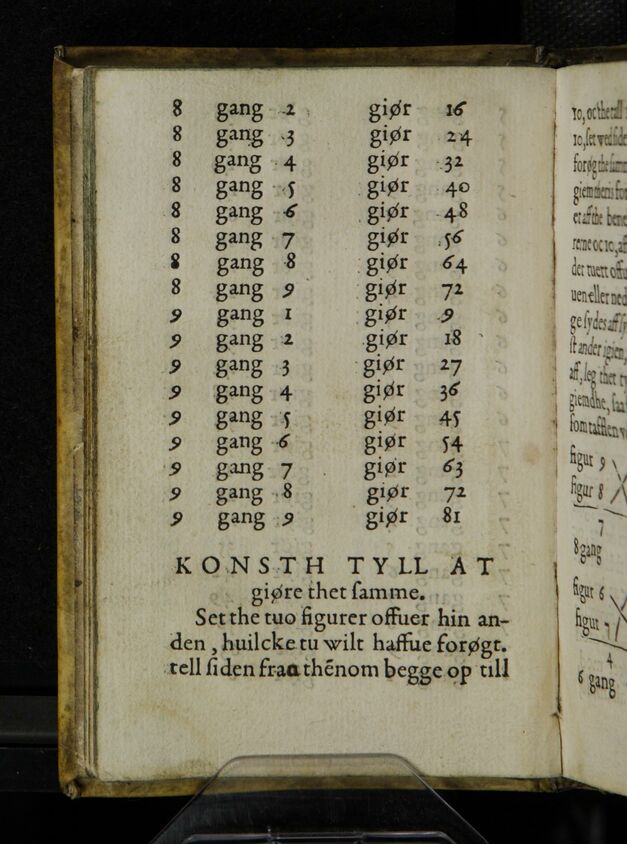 8 gang 2 giør 16
8 gang 3 giør 24
8 gang 4 giør 32
8 gang 5 giør 40
8 gang 6 giør 48
8 gang 7 giør 56
8 gang 8 giør 64
8 gang 9 giør 72
9 gang 1 giør 9
9 gang 2 giør 18
9 gang 3 giør 27
9 gang 4 giør 36
9 gang 5 giør 45
9 gang 6 giør 54
9 gang 7 giør 63
9 gang 8 giør 72
9 gang 9 giør 81
KONSTH TYLL AT
giøre thet ſamme.
Set the tuo figurer offuer hin an-
den, huilcke tu wilt haffue forøgt.
tell ſiden fraa thēnom begge op till
10, oc the tall
10, ſet wed ſide
forøg the ſamm
et aff the bene
reme oc 10, aff
det tuert offu
uen eller ned
ge ſydes aff ſy
ſt ander igien,
aff, ſeg thet t
giemdhe, ſaa
ſom tafflen w
figur 9
figur 8
7
8 gang
figur 6
figur 7
4
6 gang